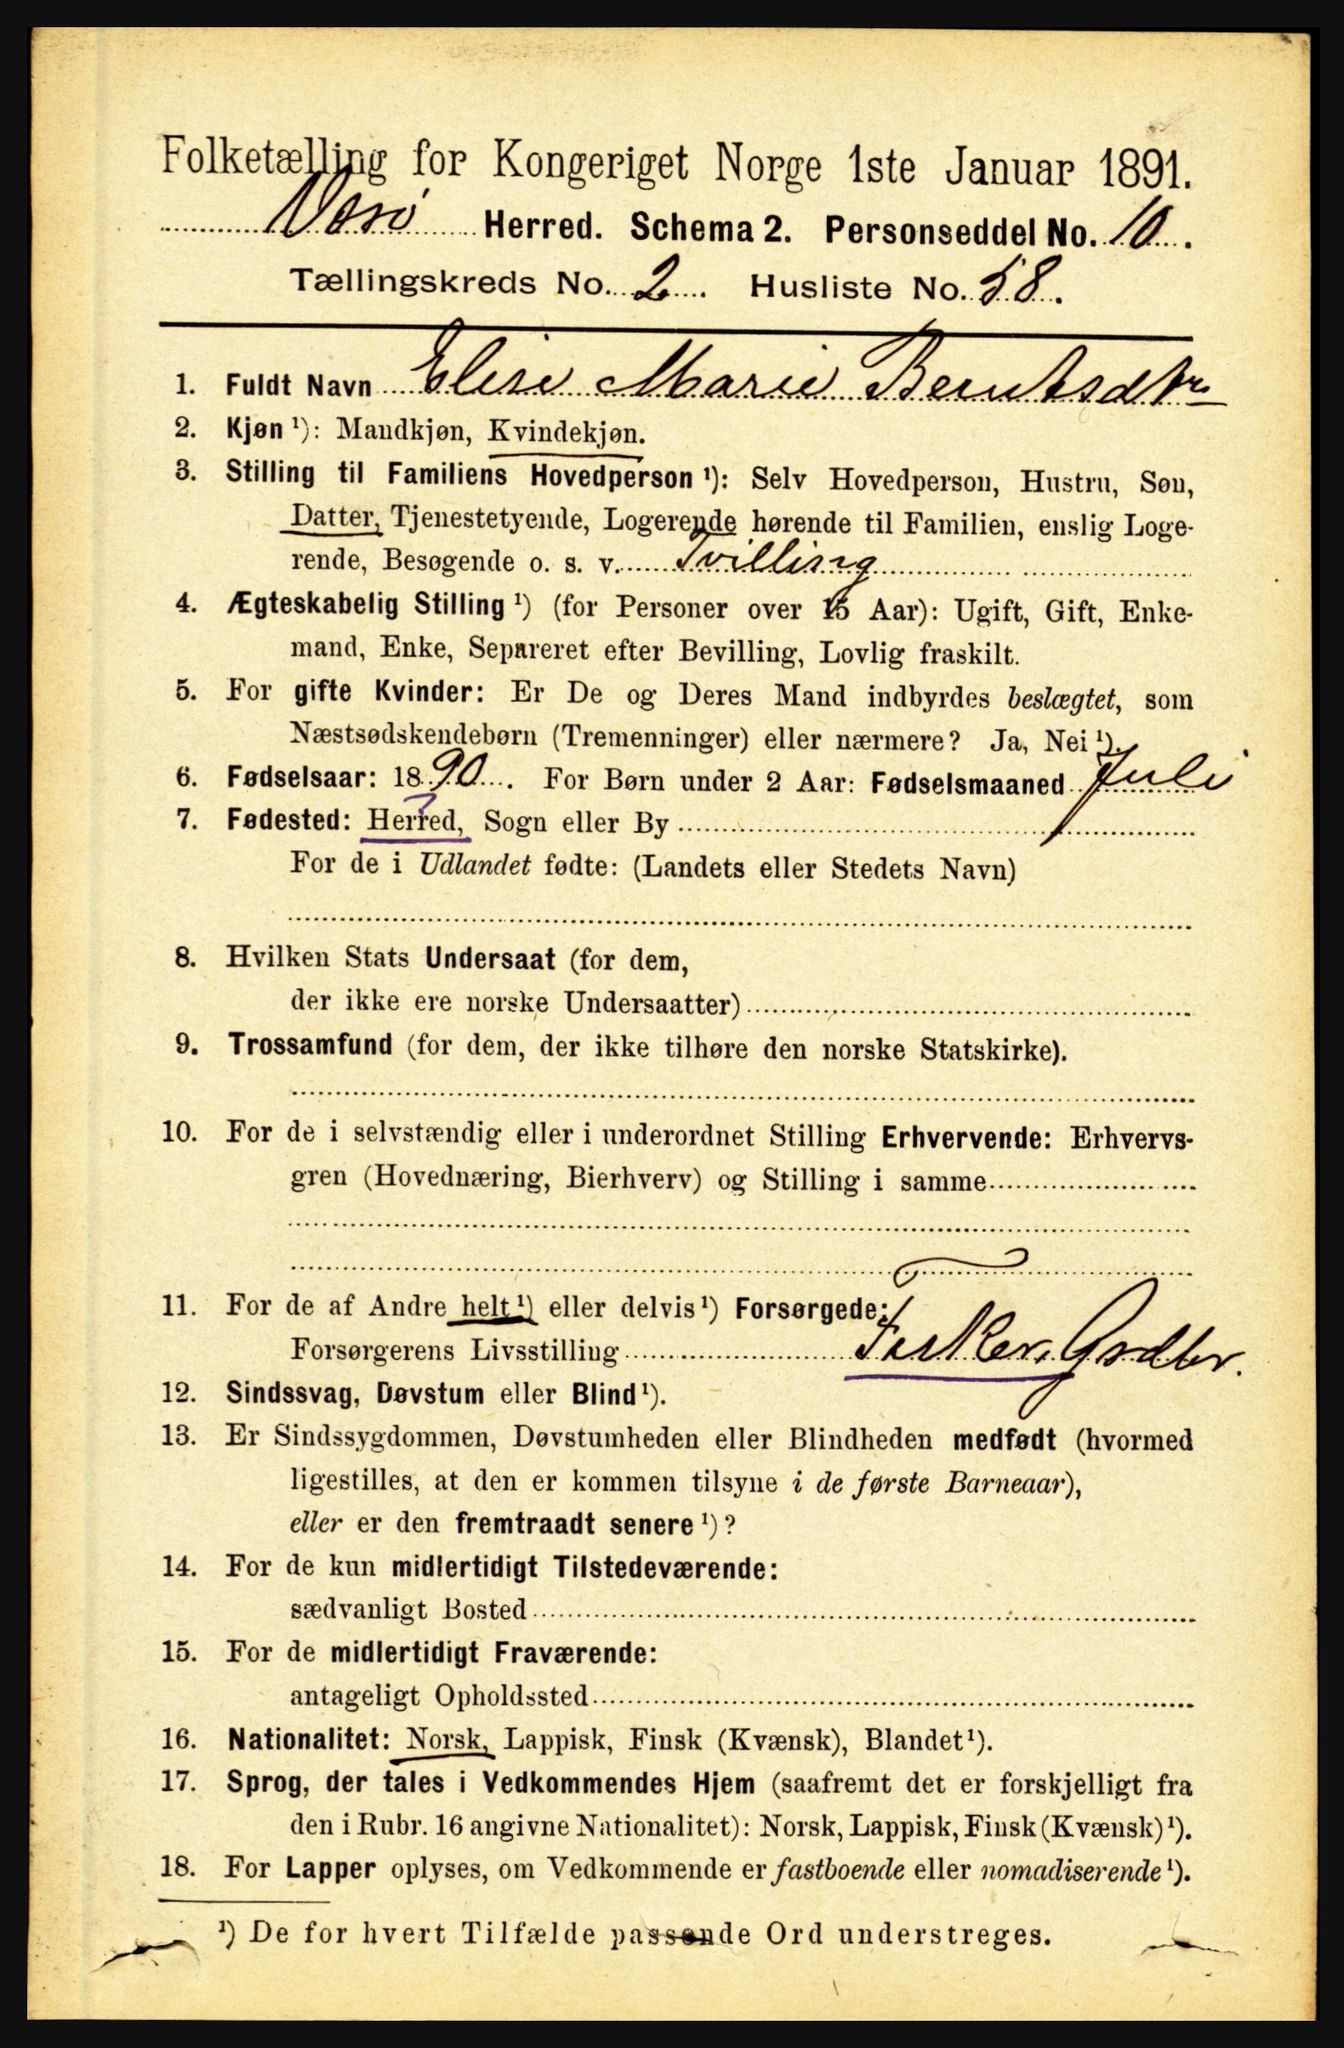 Folketælling for Kongeriget Norge 1ste Januar 1891.
Værø Herred. Schema 2. Personseddel No. 10.
Tællingskreds No. 2. Husliste No. 58.
1. Fuldt Navn Elise Marie Berntsdtr
2. Kjøn ¹): Mandkjøn, Kvindekjøn.
3. Stilling til Familiens Hovedperson ¹): Selv Hovedperson, Hustru, Søn,
Datter, Tjenestetyende, Logerende hørende til Familien, enslig Loge-
rende, Besøgende o. s. v. Tvilling
4. Ægteskabelig Stilling ¹) (for Personer over 15 Aar): Ugift, Gift, Enke-
mand, Enke, Separeret efter Bevilling, Lovlig fraskilt.
5. For gifte Kvinder: Er De og Deres Mand indbyrdes beslægtet, som
Næstsødskendebørn (Tremenninger) eller nærmere? Ja, Nei ¹).
6. Fødselsaar: 1890. For Børn under 2 Aar: Fødselsmaaned Juli
7. Fødested: Herred, Sogn eller By
For de i Udlandet fødte: (Landets eller Stedets Navn)
8. Hvilken Stats Undersaat (for dem,
der ikke ere norske Undersaatter)
9. Trossamfund (for dem, der ikke tilhøre den norske Statskirke).
10. For de i selvstændig eller i underordnet Stilling Erhvervende: Erhvervs-
gren (Hovednæring, Bierhverv) og Stilling i samme
11. For de af Andre helt ¹) eller delvis ¹) Forsørgede:
Forsørgerens Livsstilling Fisker, Grdbr.
12. Sindssvag, Døvstum eller Blind ¹).
13. Er Sindssygdommen, Døvstumheden eller Blindheden medfødt (hvormed
ligestilles, at den er kommen tilsyne i de første Barneaar),
eller er den fremtraadt senere ¹)?
14. For de kun midlertidigt Tilstedeværende:
sædvanligt Bosted
15. For de midlertidigt Fraværende:
antageligt Opholdssted
16. Nationalitet: Norsk, Lappisk, Finsk (Kvænsk), Blandet ¹).
17. Sprog, der tales i Vedkommendes Hjem (saafremt det er forskjelligt fra
den i Rubr. 16 angivne Nationalitet): Norsk, Lappisk, Finsk (Kvænsk) ¹).
18. For Lapper oplyses, om Vedkommende er fastboende eller nomadiserende ¹).
¹) De for hvert Tilfælde passende Ord understreges.